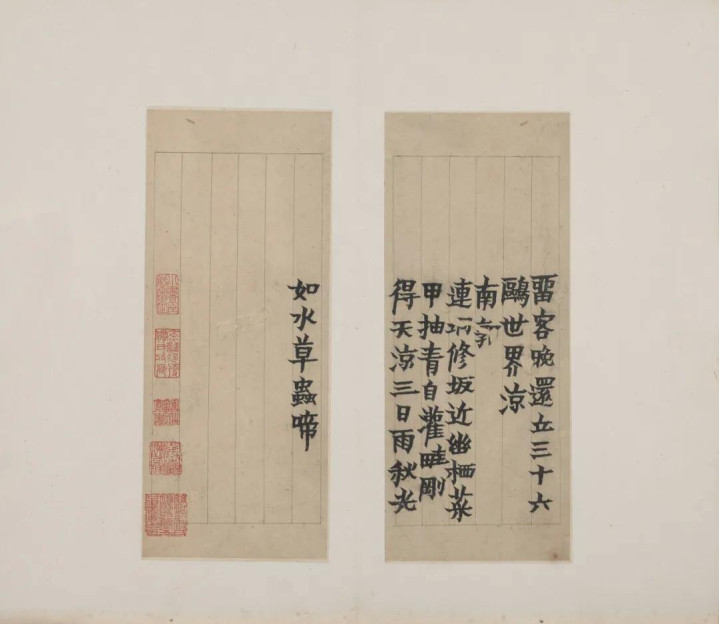 畱客晚還立三十六
鷗世界涼
南
連修坂近幽栖菜
甲抽青自灌畦剛
得天涼三日雨秋光
如水草蟲啼